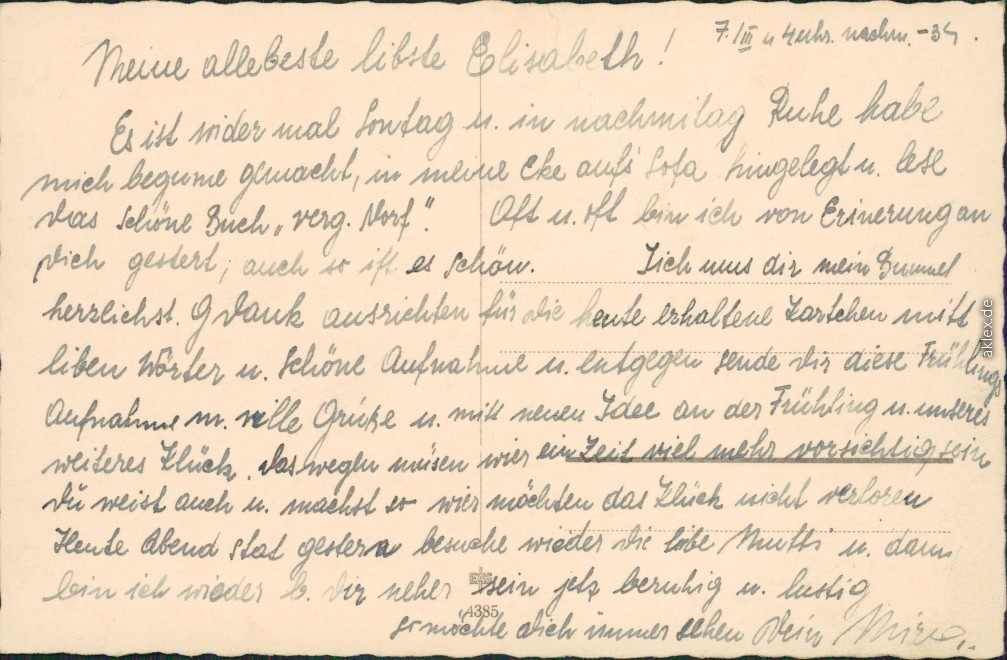 7. III u 4 uhr. nachm. -34.
Meine allebeste libste Elisabeth!
Es ist wider mal Sontag u. in nachmitag Ruhe habe
mich begume gemacht, in meine Eke auf's Sofa hingelegt u. lese
das schöne Buch „verg. Dorf". Oft u. oft bin ich von Erinerung an
dich gestert, auch so ist es schön. Jich mus dir mein Bummel
herzlichst. G dank ausrichten für die heute erhaltene Kartchen mitt
liben Wörter u. schöne Aufnahme u. entgegen sende dir diese Frühlings
Aufnahme m. ville Grüße u. mitt neuen Idee an der Frühling u. unseres
weiteres Klück. Das wegen müsen wier ein Zeit viel mehr vorsichtig sein
Du weist auch u. machst so wier möchten das Klück nicht verloren
Heute Abend stat gestern besuche wieder die libe Mutti u. dann
bin ich wieder b. Dir neher sein jetz beruhig u. lustig
EAS
4385
so möchte dich immer sehen Dein
aklex.de